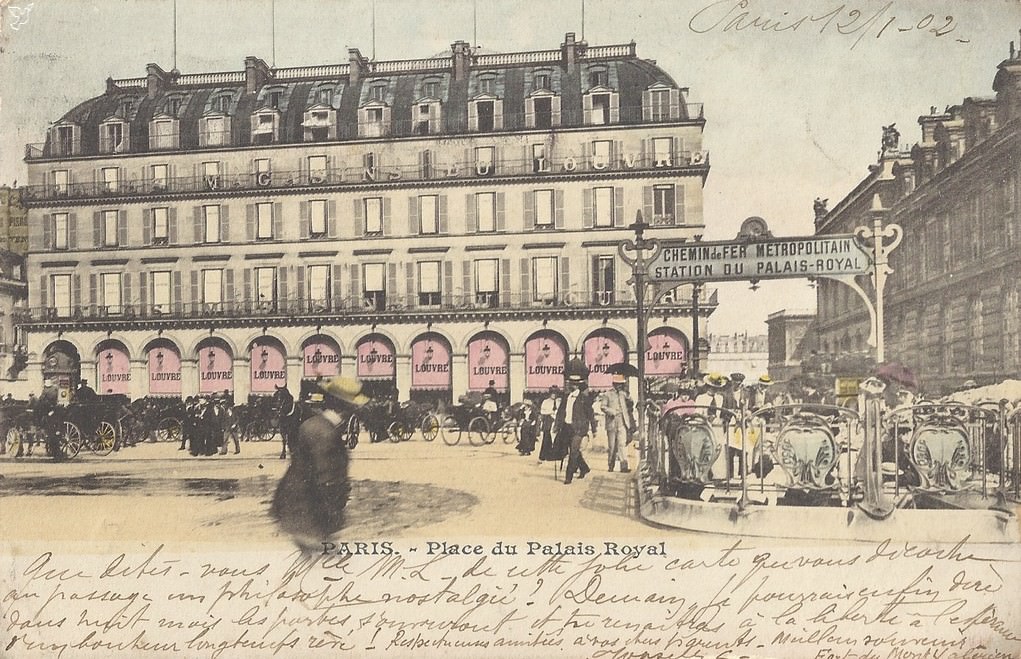 Paris 12/1-02-
MAGASINS DU LOUVRE
CHEMIN de FER METROPOLITAIN
STATION DU PALAIS-ROYAL
LOUVRE LOUVRE LOUVRE LOUVRE LOUVRE LOUVRE LOUVRE LOUVRE LOUVRE LOUVRE LOUVRE
PARIS. - Place du Palais Royal
Que dites-vous M. L. de cette jolie carte que vous décoche
au passage un philosophe nostalgic? Demain, je pourrais enfin dire
dans huit mois les portes s'ouvriront et je renaîtrai à la liberté à l'espérance
d'un bonheur longtemps rêvé! Respectueuses amitiés à vos chers parents. Meilleur souvenir
Fort du Mont Valérien